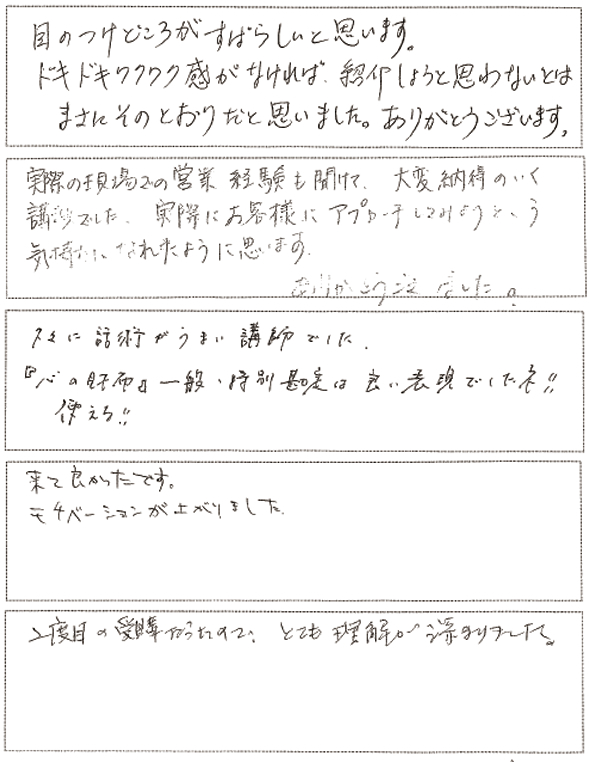 目のつけどころがすばらしいと思います。
ドキドキワクワク感がなければ、紹介しようと思わないとは
まさにそのとおりだと思いました。ありがとうございます。
実際の現場での営業経験も聞けて、大変納得のいく
講演でした。実際にお客様にアプローチしてみようという
気持ちになれたように思います。
ありがとうございました。
久々に話術がうまい講師でした。
『心の財布』一般・特別勘定は良い表現でしたネ!!
使える!!
来て良かったです。
モチベーションが上がりました。
2度目の受講だったので、とても理解が深まりました。